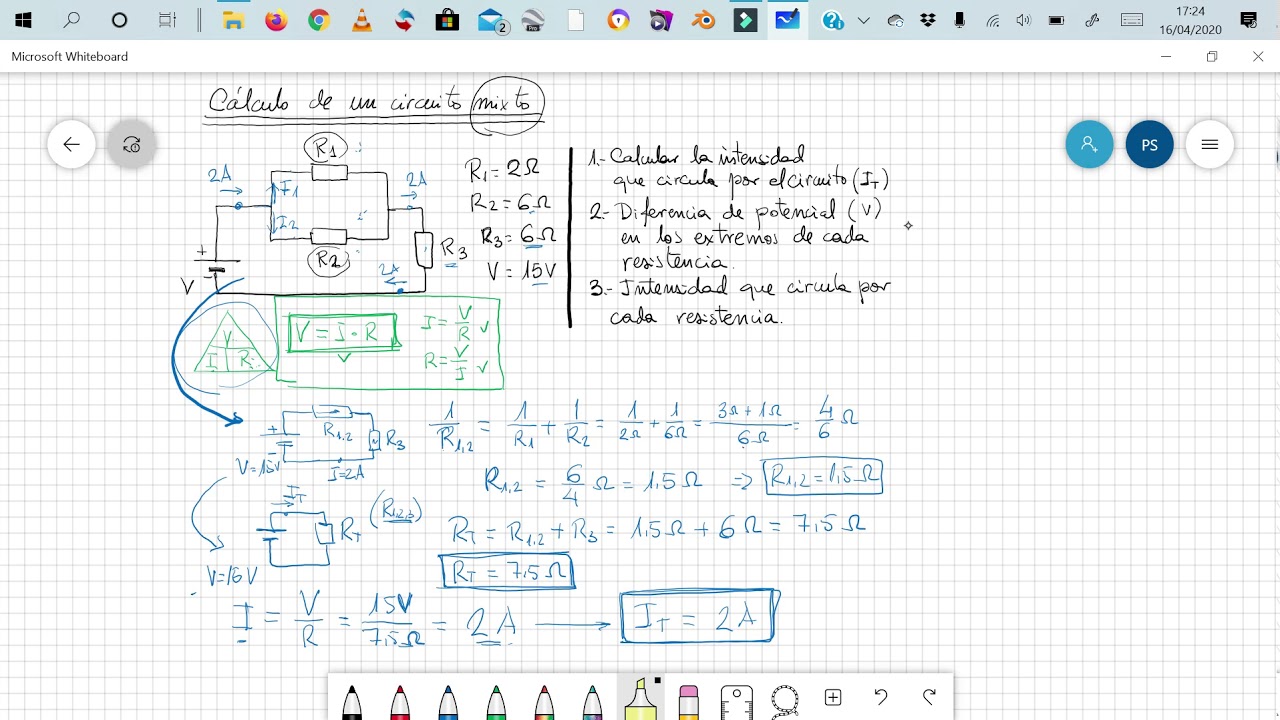 17:24
16/04/2020
2
Pro
Microsoft Whiteboard
PS
Cálculo de un circuito mixto
R1
2A
I1
I2
R2
2A
R3
2A
+
-
V
R1 = 2Ω
R2 = 6Ω
R3 = 6Ω
V = 15V
1.- Calcular la intensidad
que circula por el circuito (IT)
2.- Diferencia de potencial (V)
en los extremos de cada
resistencia.
3.- Intensidad que circula por
cada resistencia.
V
I R
V = I · R
I = V/R
R = V/I
+
R1,2
R3
V=15V
I=2A
1/R1,2 = 1/R1 + 1/R2 = 1/2Ω + 1/6Ω = 3Ω+1Ω/6Ω = 4/6 Ω
R1,2 = 6/4 Ω = 1,5 Ω => R1,2 = 1,5Ω
IT
RT
(R1,2,3)
V=16V
RT = R1,2 + R3 = 1,5Ω + 6Ω = 7,5Ω
RT = 7,5Ω
I = V/R = 15V/7,5Ω = 2A → IT = 2A